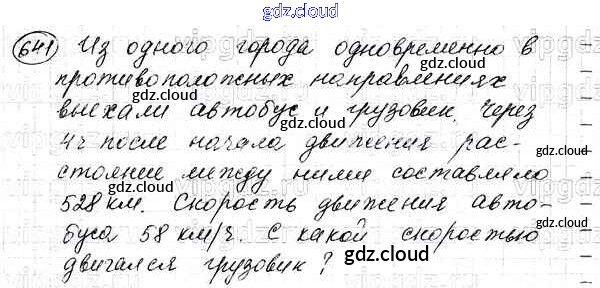 gdz.cloud
641 Из одного города одновременно в
противоположных направлениях
выехали автобус и грузовик. Через
4ч после начала движения рас-
стояние между ними составляло
528 км. Скорость движения авто-
буса 58 км/ч. С какой скоростью
двигался грузовик?